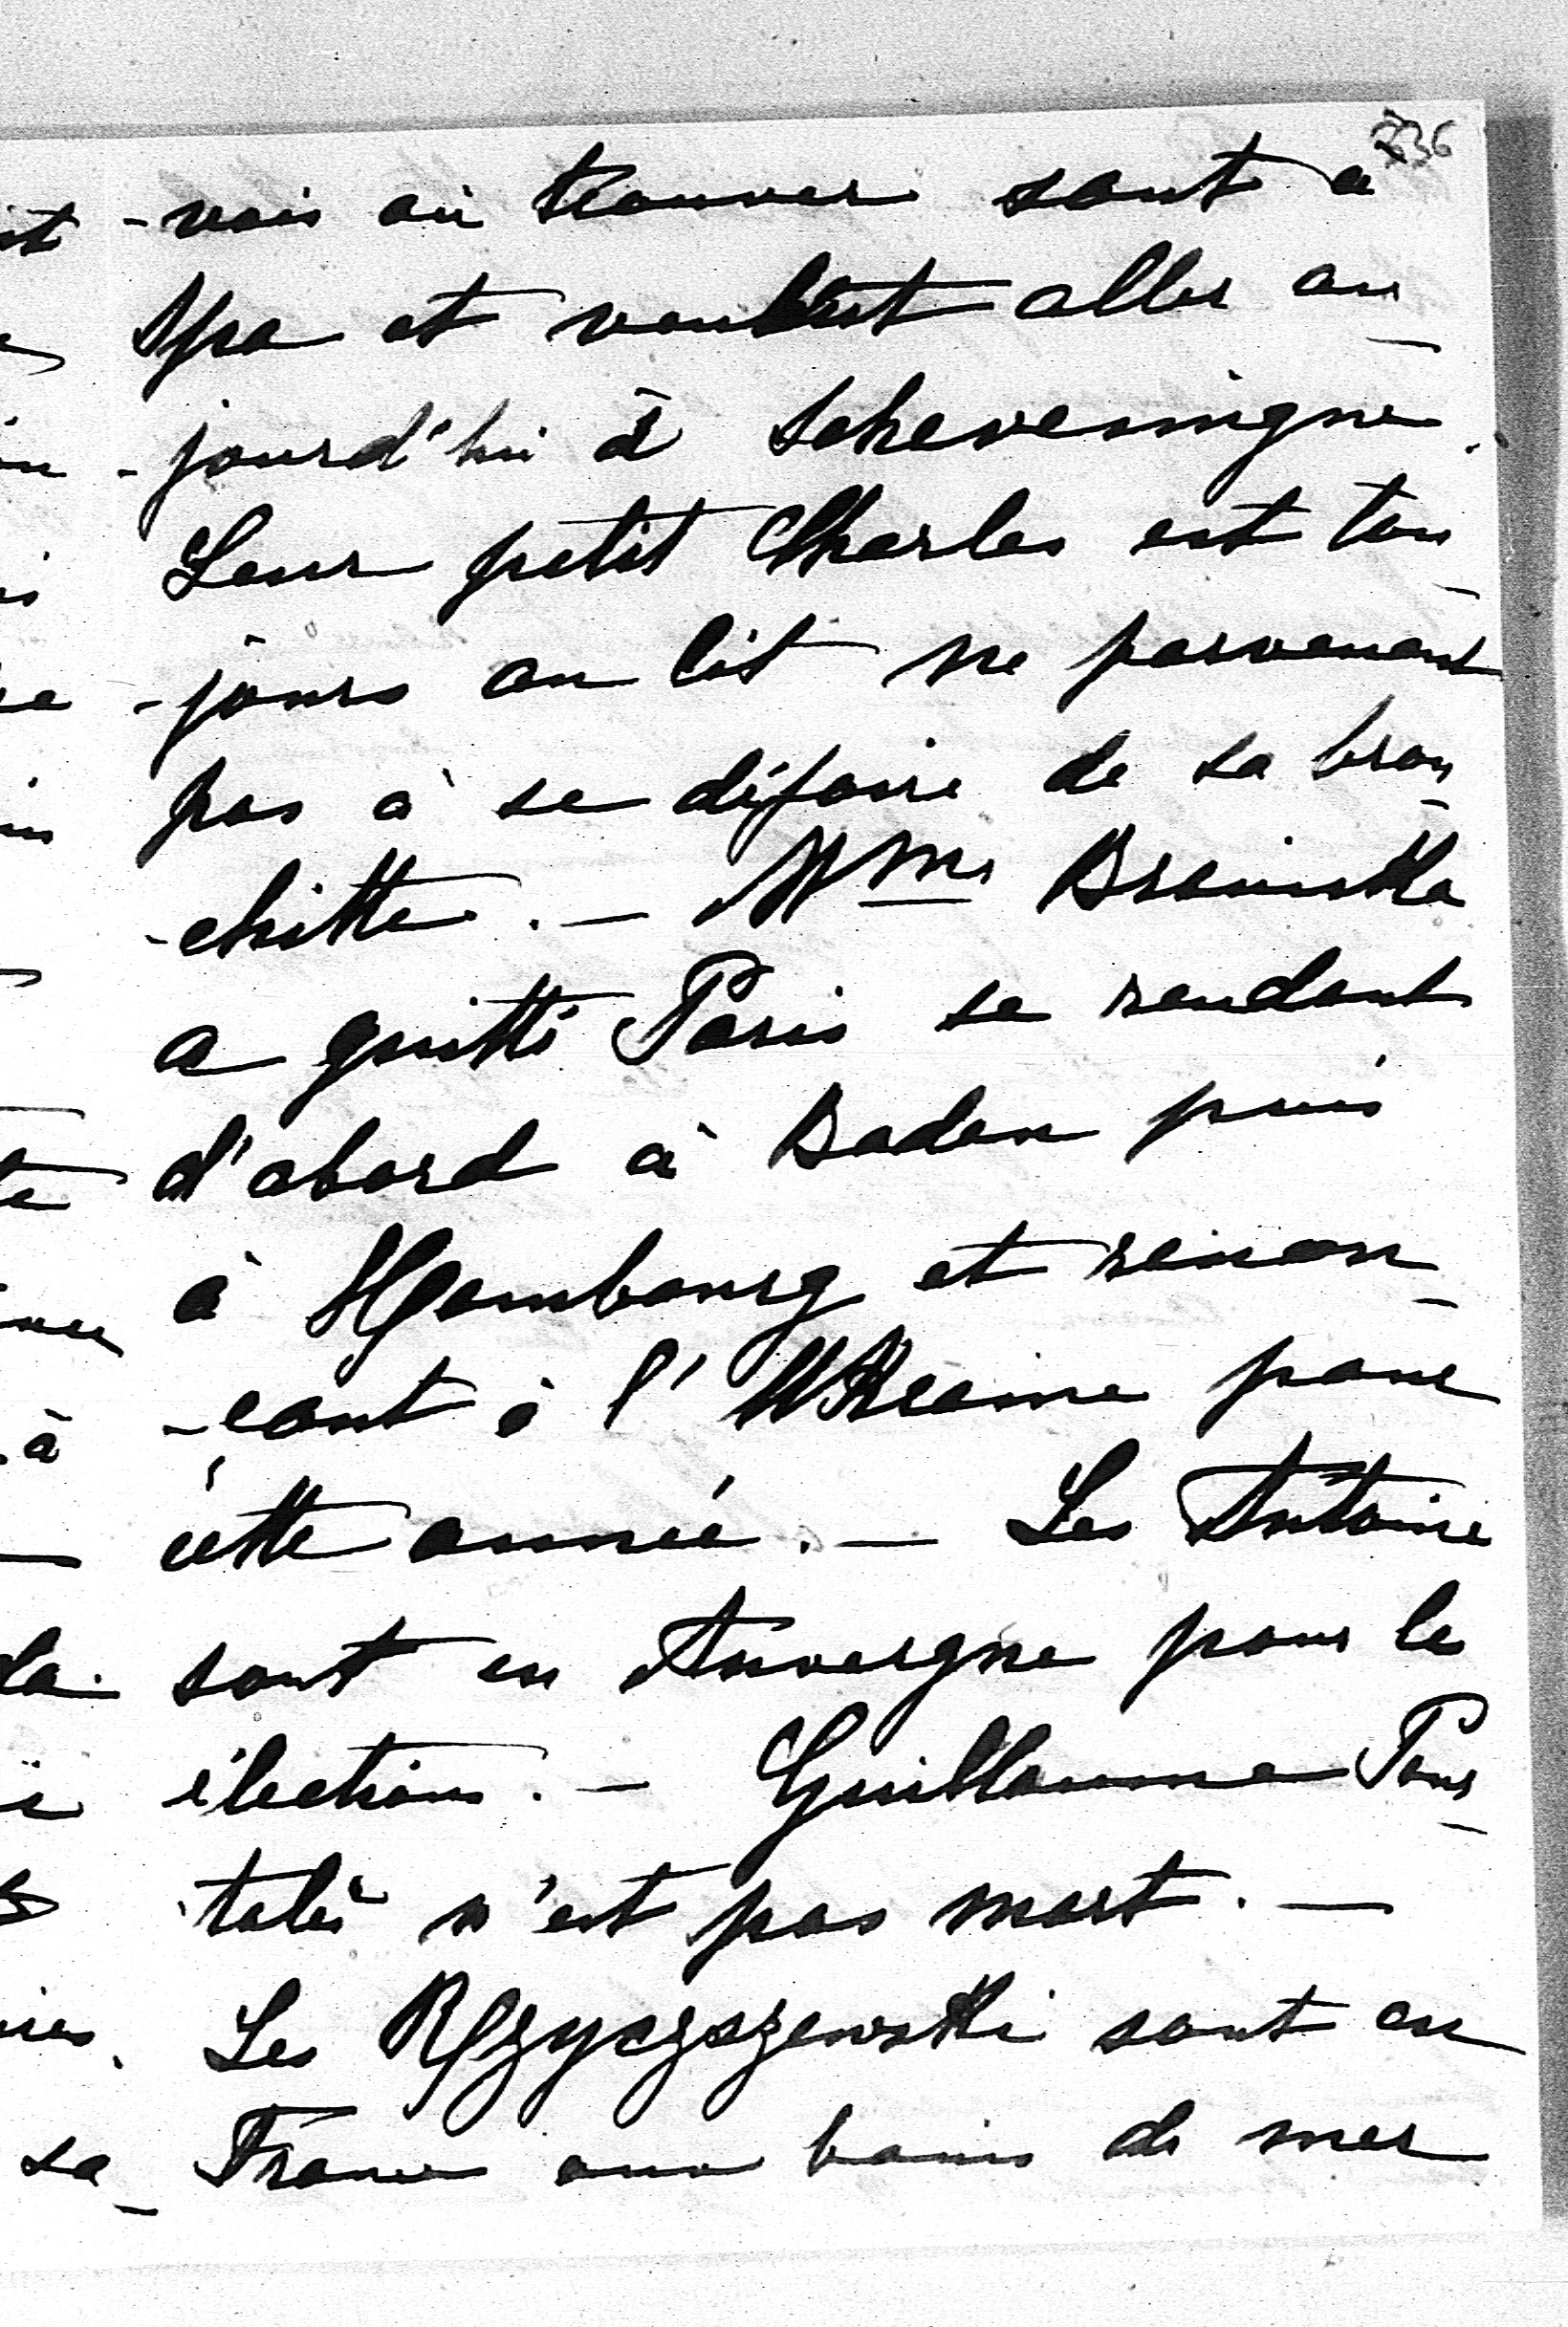 336
-vais où trouver sont à
Spa et veulent aller au-
-jourd'hui à Schevenigne.
Leur petit Charles est tou-
-jours au lit ne parvenant
pas à se défaire de sa bron-
-chitte. — Mme Braniska
a quitté Paris se rendant
d'abord à Baden puis
à Hombourg et renon-
-çant à l'Ukraine pour
cette année. — Les Antoine
sont en Auvergne pour les
élections. — Guillaume Pour-
talès n'est pas mort. —
Les Rzyczszewski sont en
France aux bains de mer